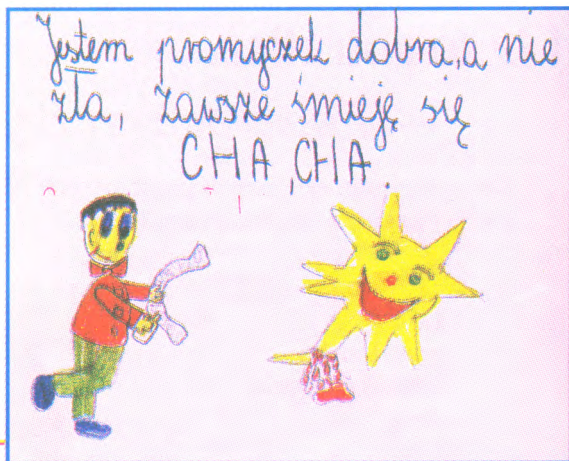 Jestem promyczek dobra, a nie
zła, zawsze śmieję się
CHA, CHA.